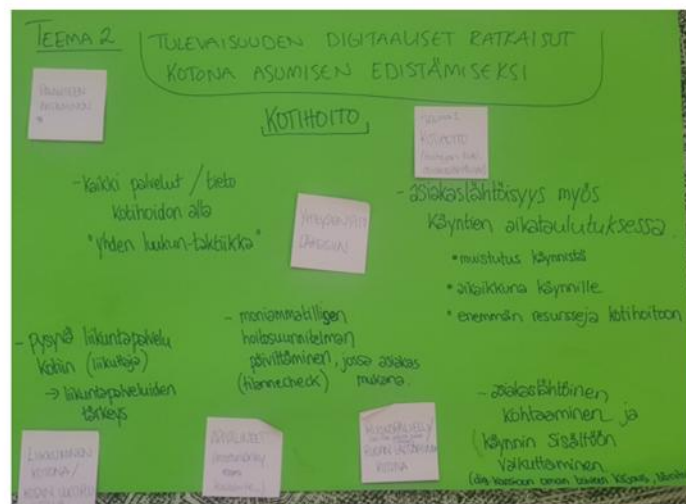 TEEMA 2
TULEVAISUUDEN DIGITAALISET RATKAISUT
KOTONA ASUMISEN EDISTÄMISEKSI
KOTIHOITO
KOTIHOITO
- Kaikki palvelut / tieto
kotihoidon alta
"yhden luukun-taktiikka"
- asiakaslähtöisyys myös
käyntien aikataulutuksessa
• muistutus käynnistä
• aikaikkuna käynnille
• enemmän resursseja kotihoitoon
- pysyvä liikuntapalvelu
kotiin (liikuttaja)
→ liikuntapalveluiden
tärkeys
- moniammatilligen
hoitosuunnitelman
päivittäminen, jossa asiakas
(tilannecheck) mukana.
- asiakaslähtöinen
kohtaaminen ja
käynnin sisältöön
vaikuttaminen
LIIKKUMINEN
KOTONA/
KOTONA